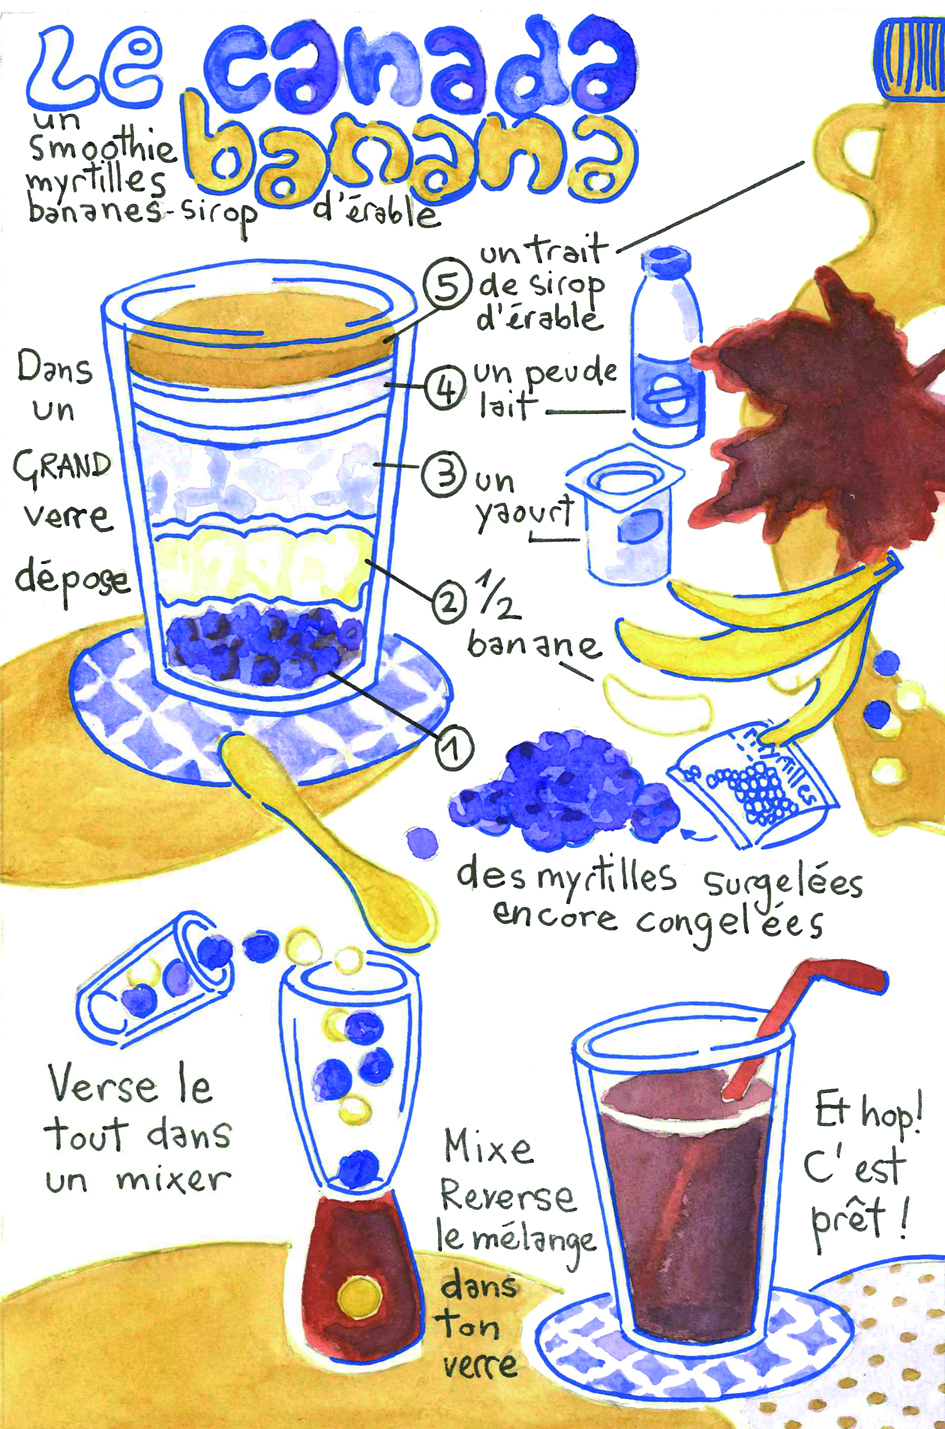 Le canada
banana
un
smoothie
myrtilles
bananes-sirop d'érable
Dans
un
GRAND
verre
dépose
5 un trait
de sirop
d'érable
4 un peu de
lait
3 un
yaourt
2 1/2
banane
1
myrtilles
des myrtilles surgelées
encore congelées
Verse le
tout dans
un mixer
Mixe
Reverse
le mélange
dans
ton
verre
Et hop!
C'est
prêt!